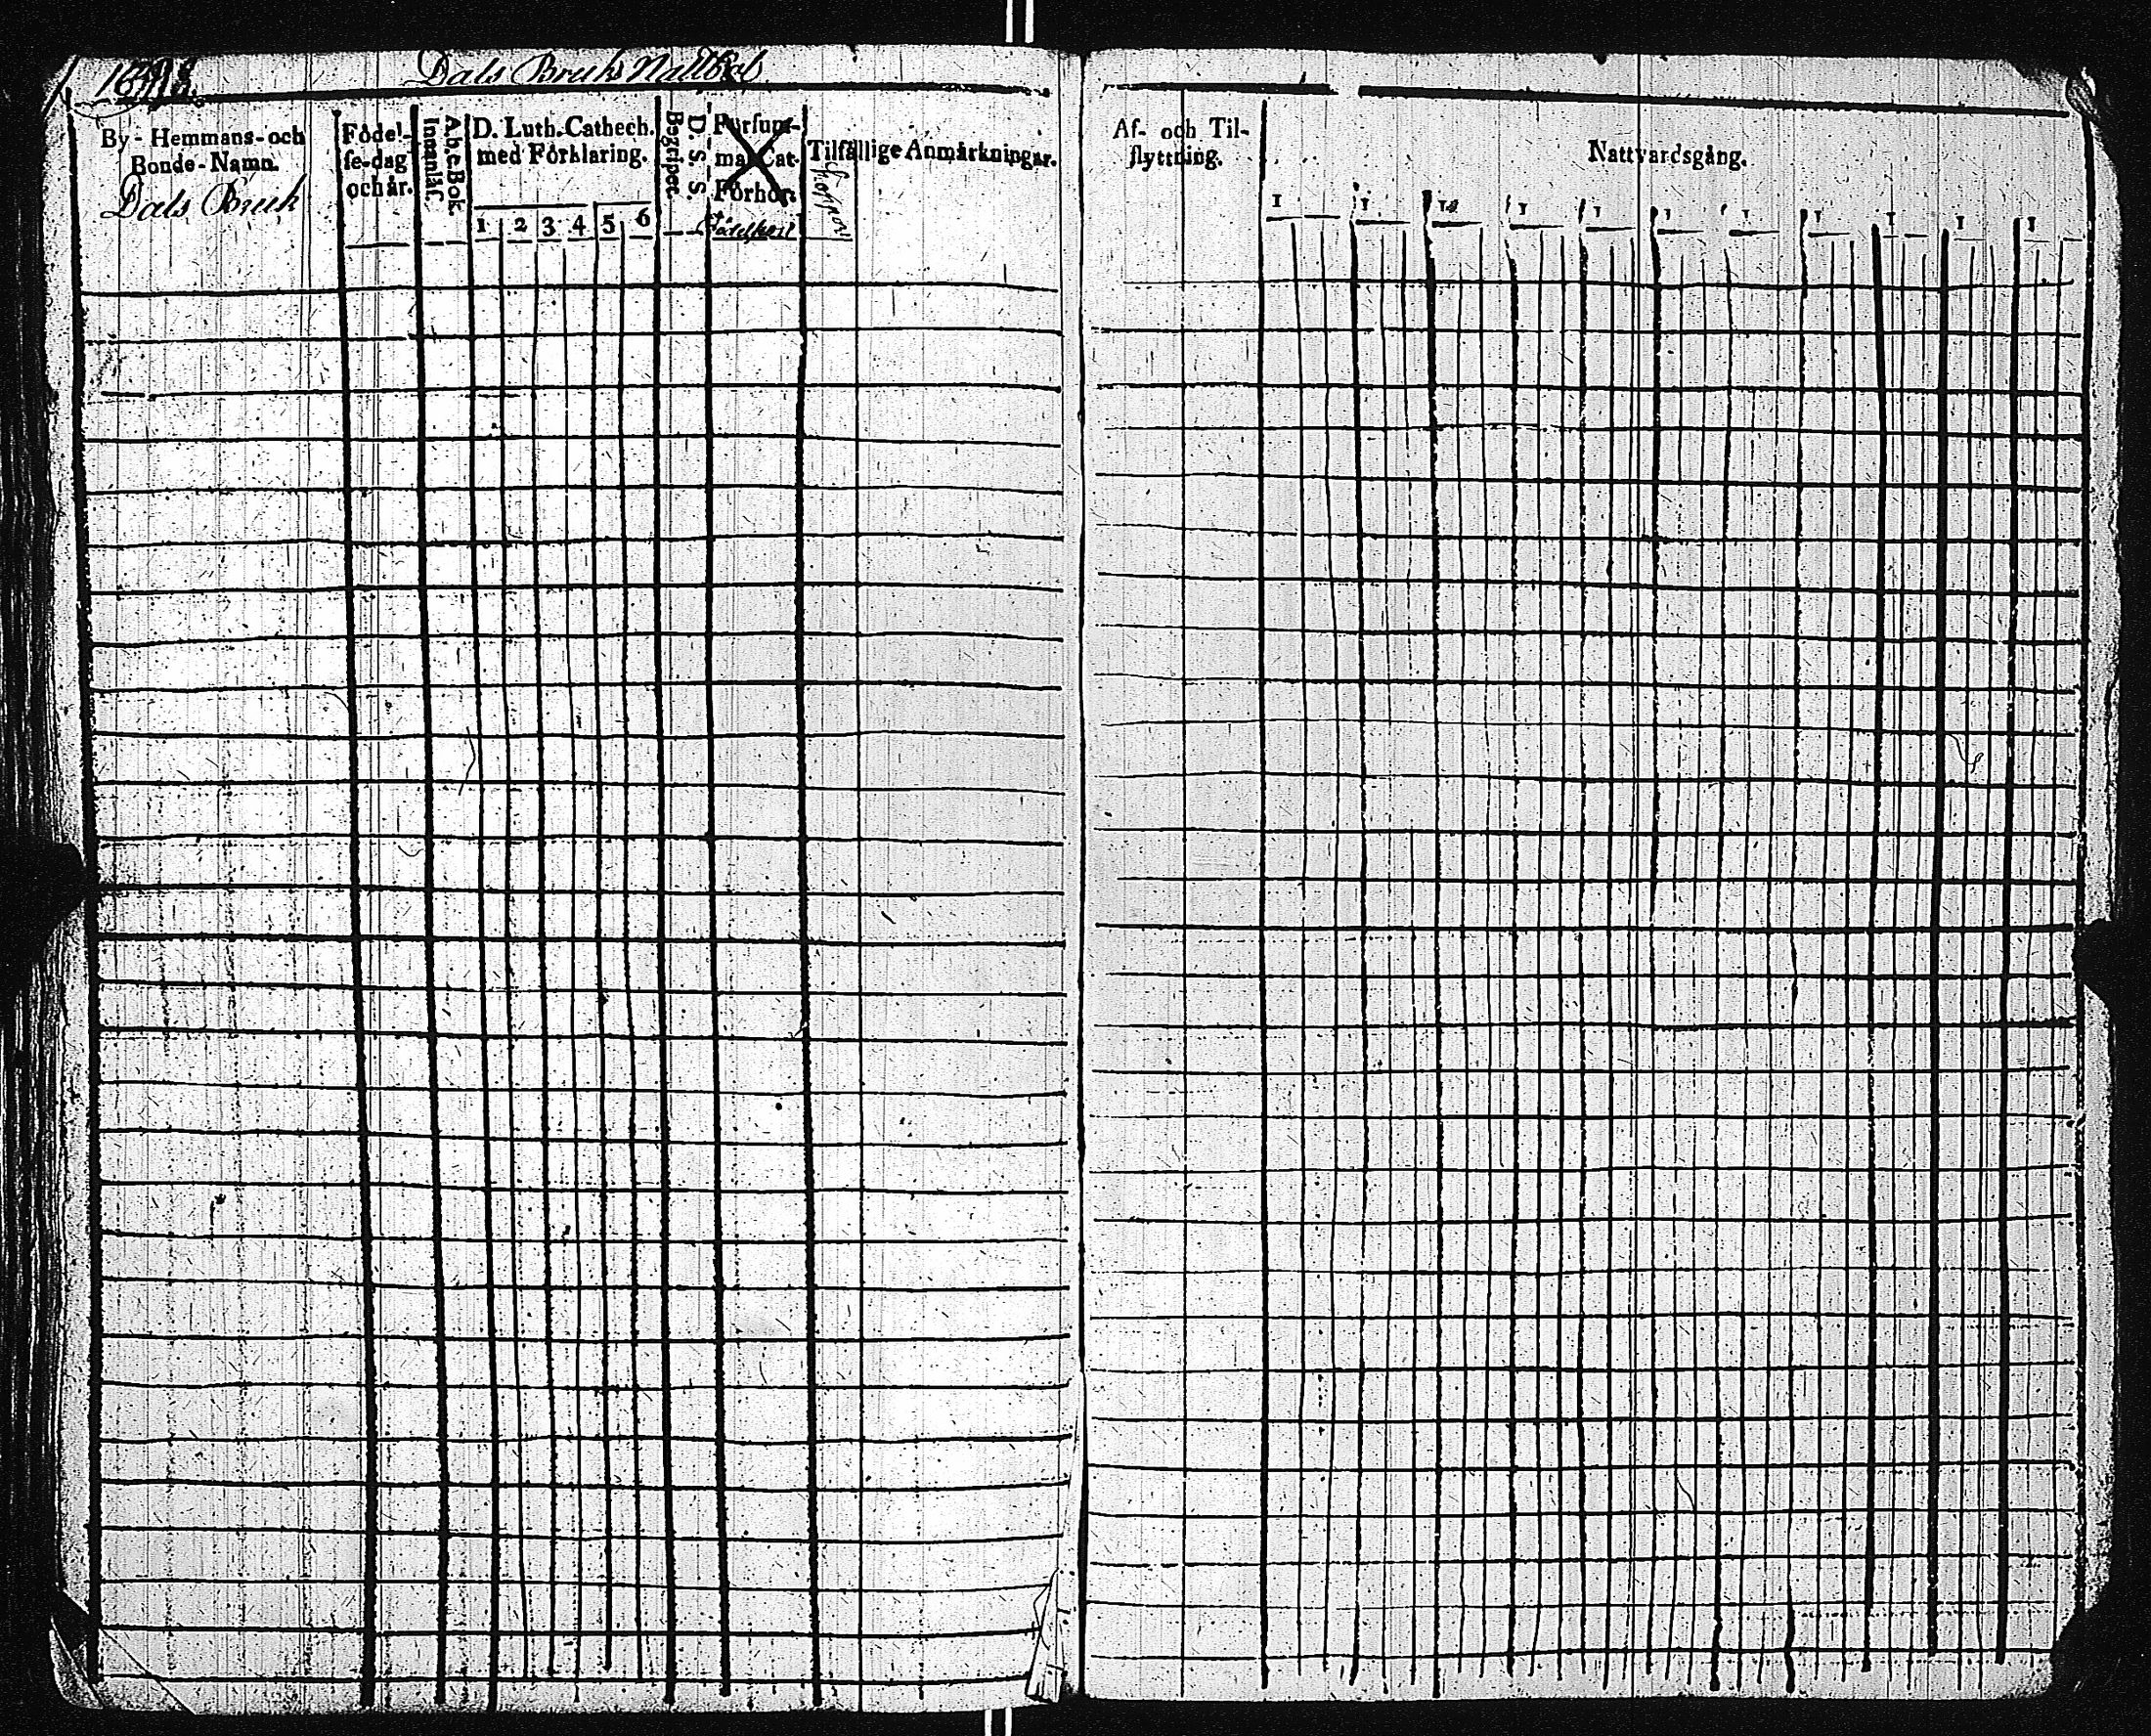 Dals Bruks
By-Hemmans-och
Bonde-Namn.
Dals Bruk
Födel-
se-dag
och år.
A.b.c.Bok.
Innanläs.
D. Luth. Cathech.
med Förklaring.
1 2 3 4 5 6
D. S. S.
Begriper.
Försum-
ma Cat.
Förhör.
Födelseort
Koppor
Tilfällige Anmärkningar.
Af- och Til-
flyttning.
Nattvardsgång.
1 1 1 1 1 1 1 1 1 1 1